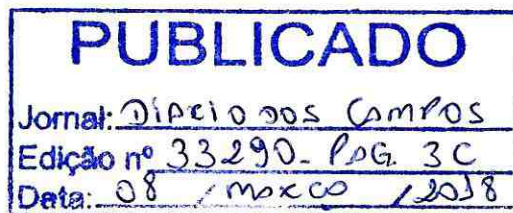 PUBLICADO
Jornal: DIÁRIO DOS CAMPOS
Edição nº 33.290 - PÁG. 3C
Data: 08 / MARÇO / 2018